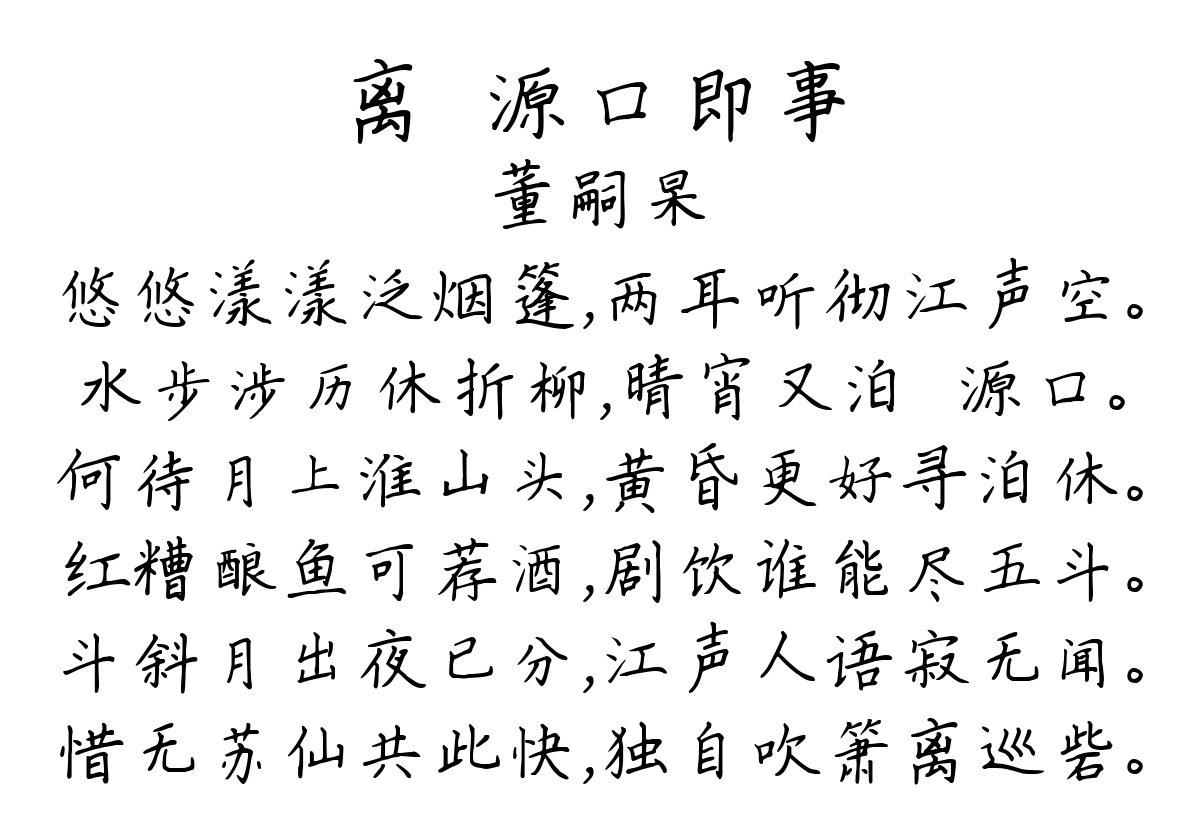 离 源口即事
董嗣杲
悠悠漾漾泛烟篷,两耳听彻江声空。
水步涉历休折柳,晴宵又泊 源口。
何待月上淮山头,黄昏更好寻泊休。
红糟酿鱼可荐酒,剧饮谁能尽五斗。
斗斜月出夜已分,江声人语寂无闻。
惜无苏仙共此快,独自吹箫离巡砦。